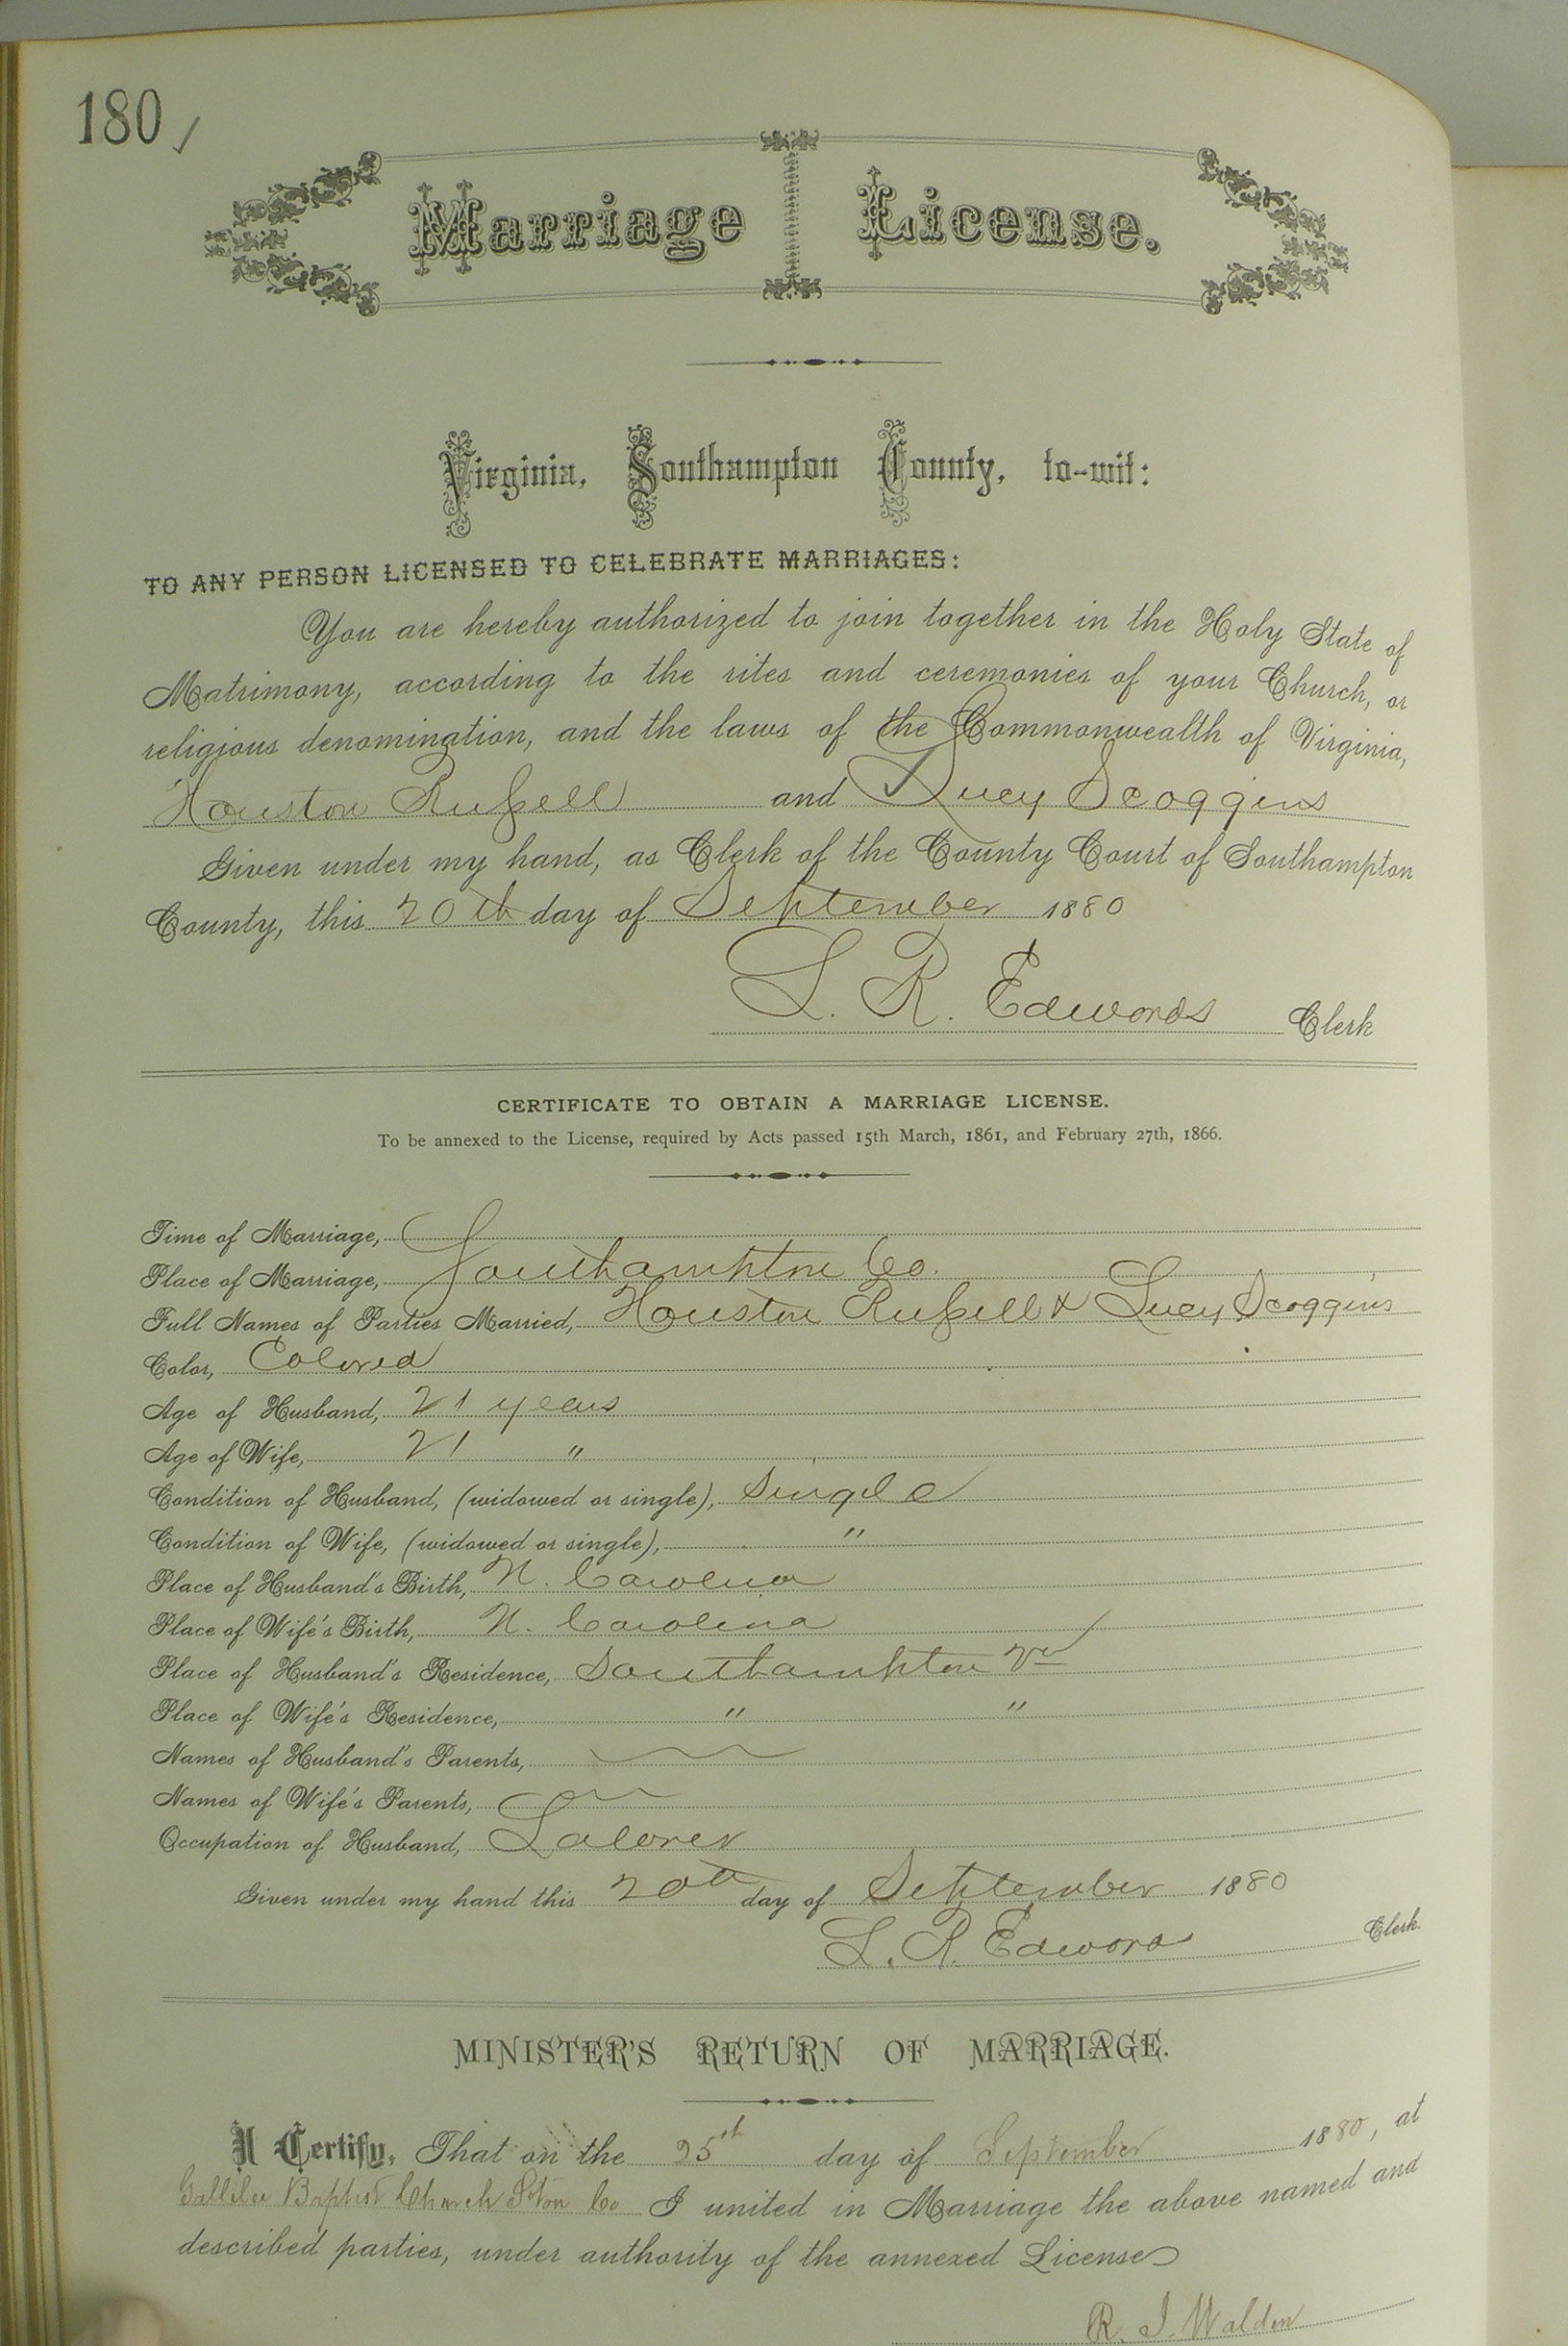 180
Marriage License.
Virginia, Southampton County, to-wit:
TO ANY PERSON LICENSED TO CELEBRATE MARRIAGES:
You are hereby authorized to join together in the Holy State of
Matrimony, according to the rites and ceremonies of your Church, or
religious denomination, and the laws of the Commonwealth of Virginia,
Houston Russell and Lucy Scoggins
Given under my hand, as Clerk of the County Court of Southampton
County, this 20th day of September 1880
L. R. Edwards Clerk
CERTIFICATE TO OBTAIN A MARRIAGE LICENSE.
To be annexed to the License, required by Acts passed 15th March, 1861, and February 27th, 1866.
Time of Marriage,
Place of Marriage, Southampton Co.
Full Names of Parties Married, Houston Russell & Lucy Scoggins
Color, Colored
Age of Husband, 21 years
Age of Wife, 21 "
Condition of Husband, (widowed or single), Single
Condition of Wife, (widowed or single), "
Place of Husband's Birth, N. Carolina
Place of Wife's Birth, N. Carolina
Place of Husband's Residence, Southampton Va
Place of Wife's Residence, " "
Names of Husband's Parents,
Names of Wife's Parents,
Occupation of Husband, Laborer
Given under my hand this 20th day of September 1880
L. R. Edwards Clerk.
MINISTER'S RETURN OF MARRIAGE.
I Certify, That on the 25th day of September 1880, at
Gallilee Baptist Church S'ton Co I united in Marriage the above named and
described parties, under authority of the annexed License
R. J. Walden